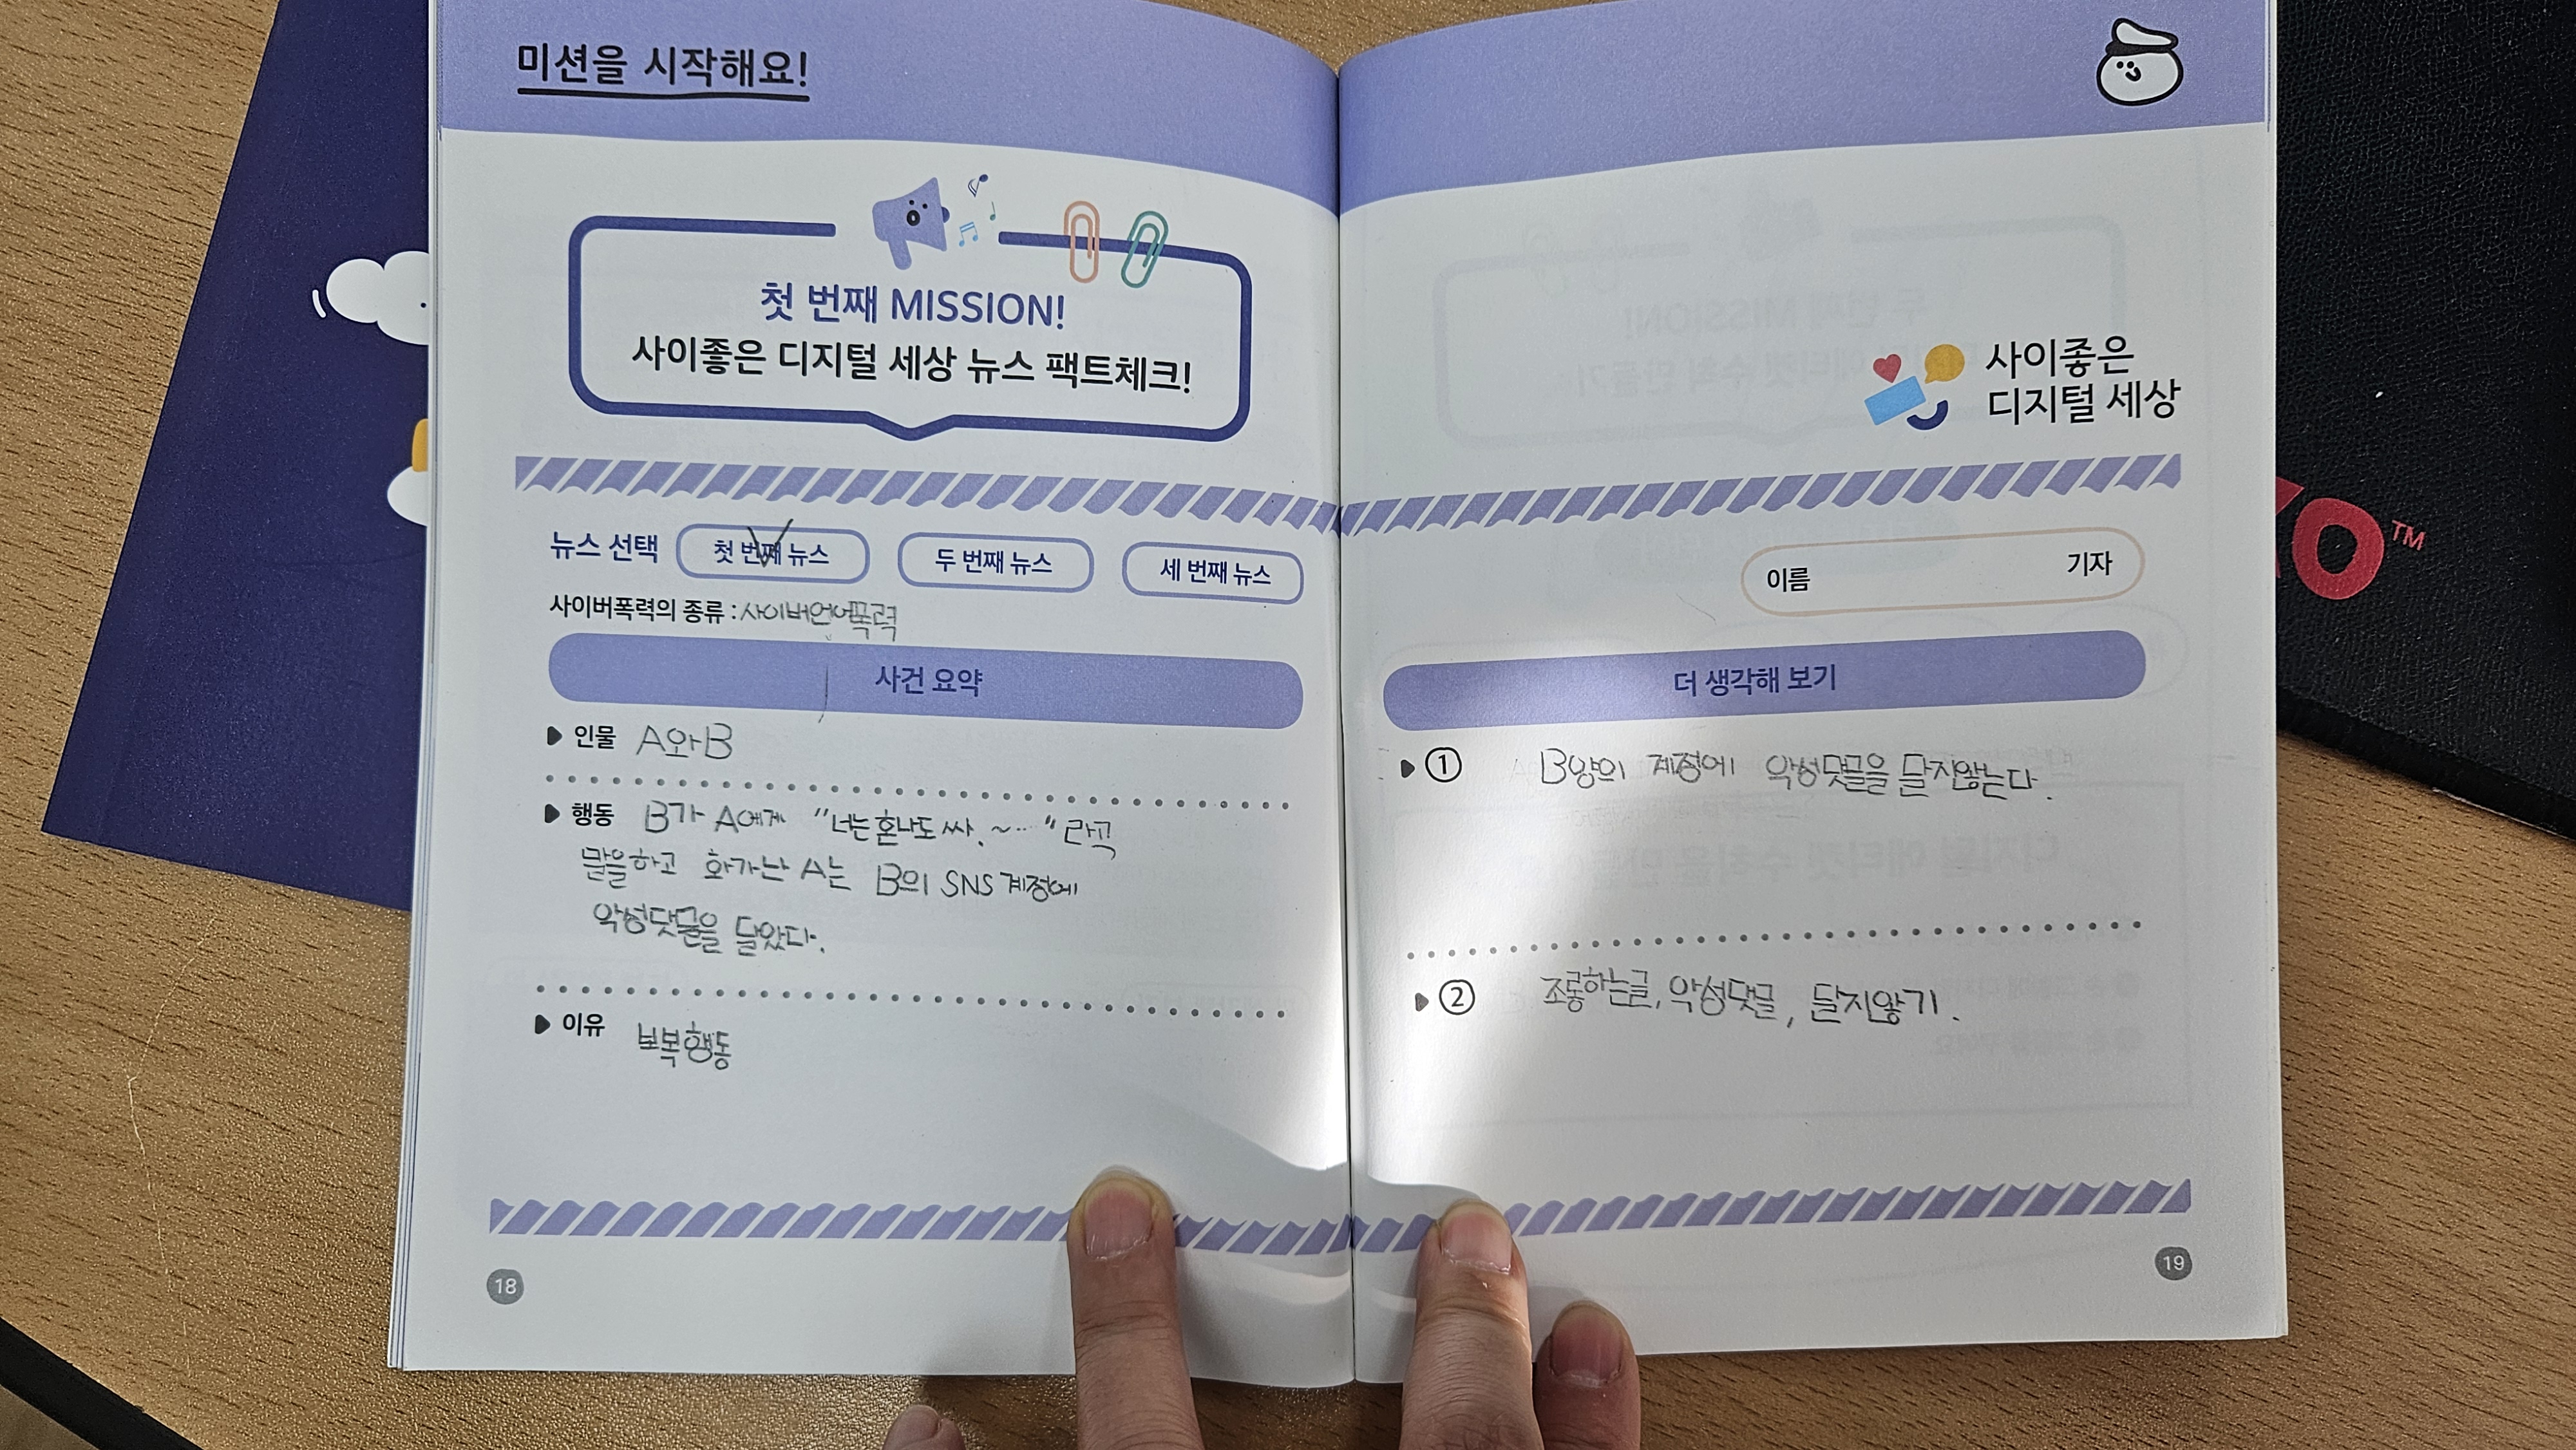 미션을 시작해요!
첫 번째 MISSION!
사이좋은 디지털 세상 뉴스 팩트체크!
사이좋은
디지털 세상
뉴스 선택 첫 번째 뉴스 두 번째 뉴스 세 번째 뉴스
사이버폭력의 종류 : 사이버언어폭력
사건 요약
인물 A와 B
행동 B가 A에게 "너는 혼나도 싸. ~…" 라고
말을하고 화가난 A는 B의 SNS 계정에
악성댓글을 달았다.
이유 보복행동
18
이름 기자
더 생각해 보기
① B양의 계정에 악성댓글을 달지않는다.
② 조롱하는글, 악성댓글, 달지않기.
19
O™